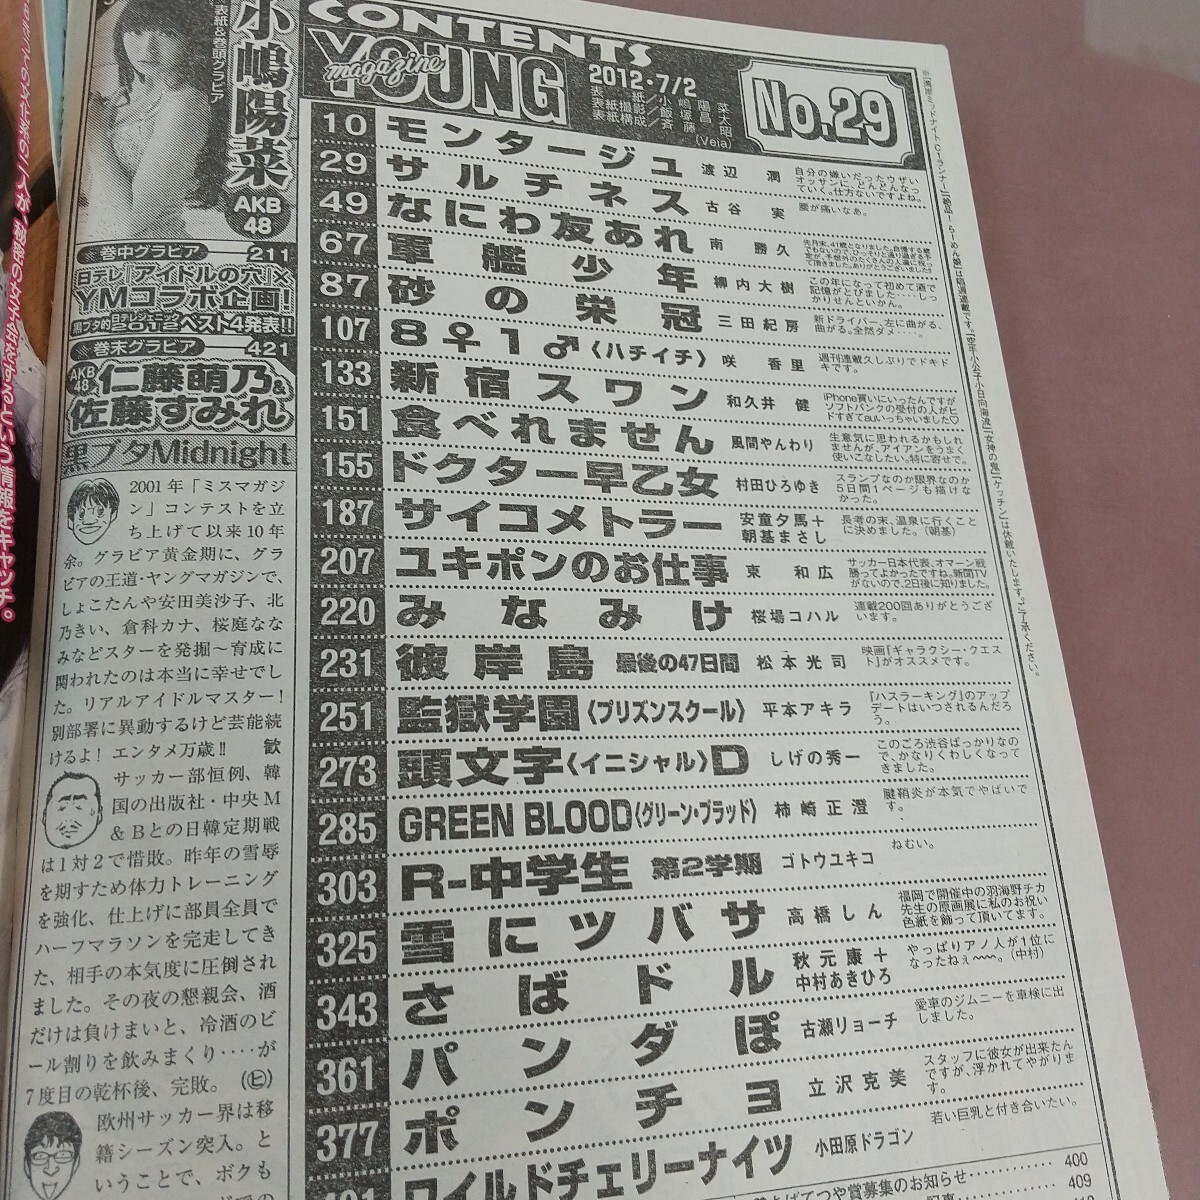 CONTENTS
YOUNG
magazine
2012・7/2
表紙／小嶋陽菜
表紙撮影／飯塚昌太
表紙構成／斉藤昭
(Veia)
No.29
小嶋陽菜
AKB
48
表紙&巻頭グラビア
巻中グラビア 211
日テレ『アイドルの穴』×
YMコラボ企画!
黒ブタ的日テレジェニック2012ベスト4発表!!
巻末グラビア 421
AKB48 仁藤萌乃&
佐藤すみれ
黒ブタMidnight
2001年「ミスマガジ
ン」コンテストを立
ち上げて以来10年
余。グラビア黄金期に、グラ
ビアの王道・ヤングマガジンで、
しょこたんや安田美沙子、北
乃きい、倉科カナ、桜庭なな
みなどスターを発掘〜育成に
関われたのは本当に幸せでし
た。リアルアイドルマスター!
別部署に異動するけど芸能続
けるよ! エンタメ万歳!! 歓
サッカー部恒例、韓
国の出版社・中央M
&Bとの日韓定期戦
は1対2で惜敗。昨年の雪辱
を期すため体力トレーニング
を強化、仕上げに部員全員で
ハーフマラソンを完走してき
た、相手の本気度に圧倒され
ました。その夜の懇親会、酒
だけは負けまいと、冷酒のビ
ール割りを飲みまくり‥‥が
7度目の乾杯後、完敗。 ㋪
欧州サッカー界は移
籍シーズン突入。と
いうことで、ボクも
10 モンタージュ 渡辺 潤 自分の嫌いだったウザい
オッサンに、どんどんなっ
ていく。仕方ないですよね。
29 サルチネス 古谷 実 腰が痛いなあ。
49 なにわ友あれ 南 勝久
67 軍艦少年 柳内大樹 この年になって初めて酒で
記憶がとびました‥‥しっ
かりせんといかん。
87 砂の栄冠 三田紀房 新ドライバー、左に曲がる、
曲がる。全然ダメ‥‥
107 8♀1♂〈ハチイチ〉 咲 香里 週刊連載久しぶりでドキド
キです。
133 新宿スワン 和久井 健 iPhone買いにいったんですが
ソフトバンクの受付の人がヒ
ドすぎてauいっちゃいました♡
151 食べれません 風間やんわり 生意気に思われるかもしれ
ませんが、アイアンをうまく
使いこなしたい。特に寄せで。
155 ドクター早乙女 村田ひろゆき スランプなのか限界なのか
5日間1ページも描けな
かった。
187 サイコメトラー 安童夕馬＋
朝基まさし 長考の末、温泉に行くこと
に決めました。(朝基)
207 ユキポンのお仕事 東 和広 サッカー日本代表、オマーン戦
勝ってよかったですね。新聞TV
がないので、2日後に知りました。
220 みなみけ 桜場コハル 連載200回ありがとうござ
います。
231 彼岸島 最後の47日間 松本光司 映画『ギャラクシー・クエス
ト』がオススメです。
251 監獄学園〈プリズンスクール〉 平本アキラ 『ハスラーキング』のアップ
デートはいつされるんだろ
う。
273 頭文字〈イニシャル〉D しげの秀一 このごろ渋谷ばっかりなの
で、かなりくわしくなって
きました。
285 GREEN BLOOD〈グリーン・ブラッド〉 柿崎正澄 腱鞘炎が本気でやばいで
す。
303 R-中学生 第2学期 ゴトウユキコ ねむい。
325 雪にツバサ 高橋しん 福岡で開催中の羽海野チカ
先生の原画展に私のお祝い
色紙を飾って頂いてます。
343 さばドル 秋元 康＋
中村あきひろ やっぱりアノ人が1位に
なったねぇ〜〜〜。(中村)
361 パンダぽ 古瀬リョーチ 愛車のジムニーを車検に出
しました。
377 ポンチョ 立沢克美 スタッフに彼女が出来たん
ですが、浮かれてやがりま
す。
401 ワイルドチェリーナイツ 小田原ドラゴン 若い巨乳と付き合いたい。
ばてつや賞募集のお知らせ 400
409